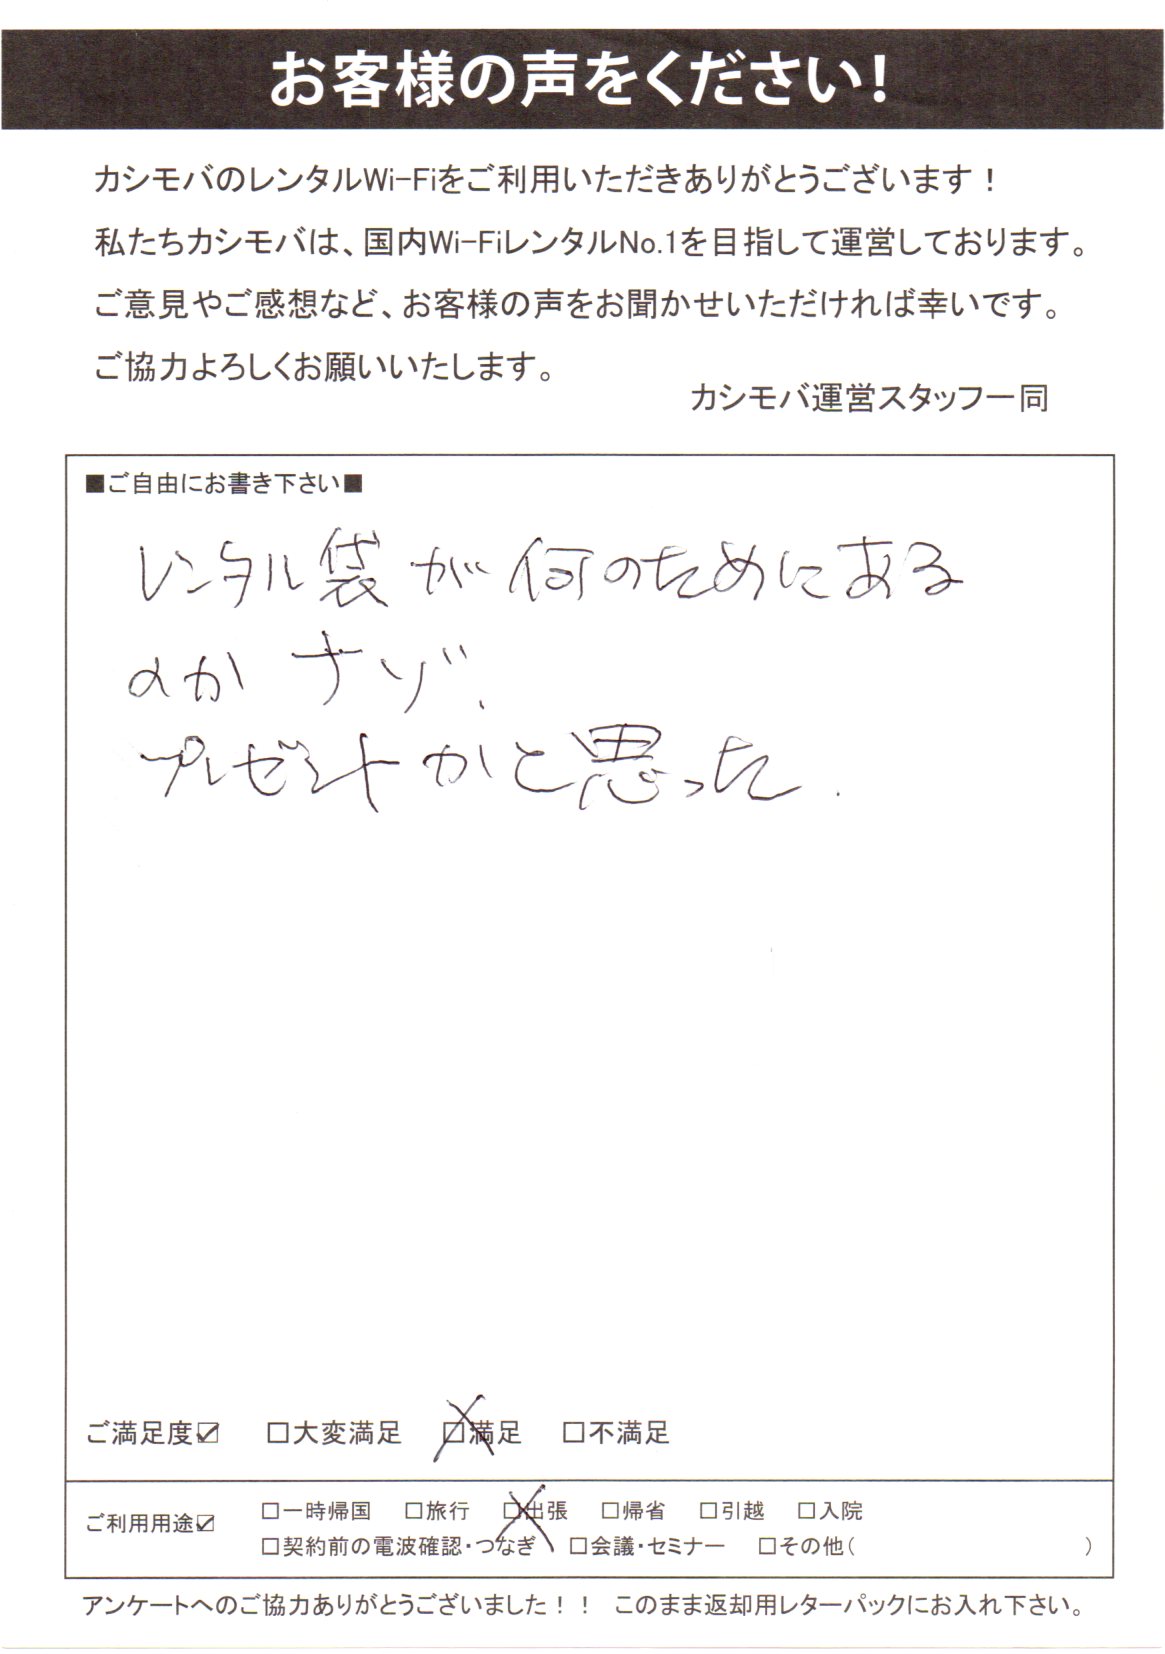 お客様の声をください!
カシモバのレンタルWi-Fiをご利用いただきありがとうございます！
私たちカシモバは、国内Wi-FiレンタルNo.1を目指して運営しております。
ご意見やご感想など、お客様の声をお聞かせいただければ幸いです。
ご協力よろしくお願いいたします。
カシモバ運営スタッフ一同
■ご自由にお書き下さい■
レンタル袋が何のためにある
のか ナゾ.
プレゼントかと思った.
ご満足度☑ □大変満足 □満足 □不満足
ご利用用途☑ □一時帰国 □旅行 □出張 □帰省 □引越 □入院
□契約前の電波確認・つなぎ □会議・セミナー □その他( )
アンケートへのご協力ありがとうございました！！ このまま返却用レターパックにお入れ下さい。